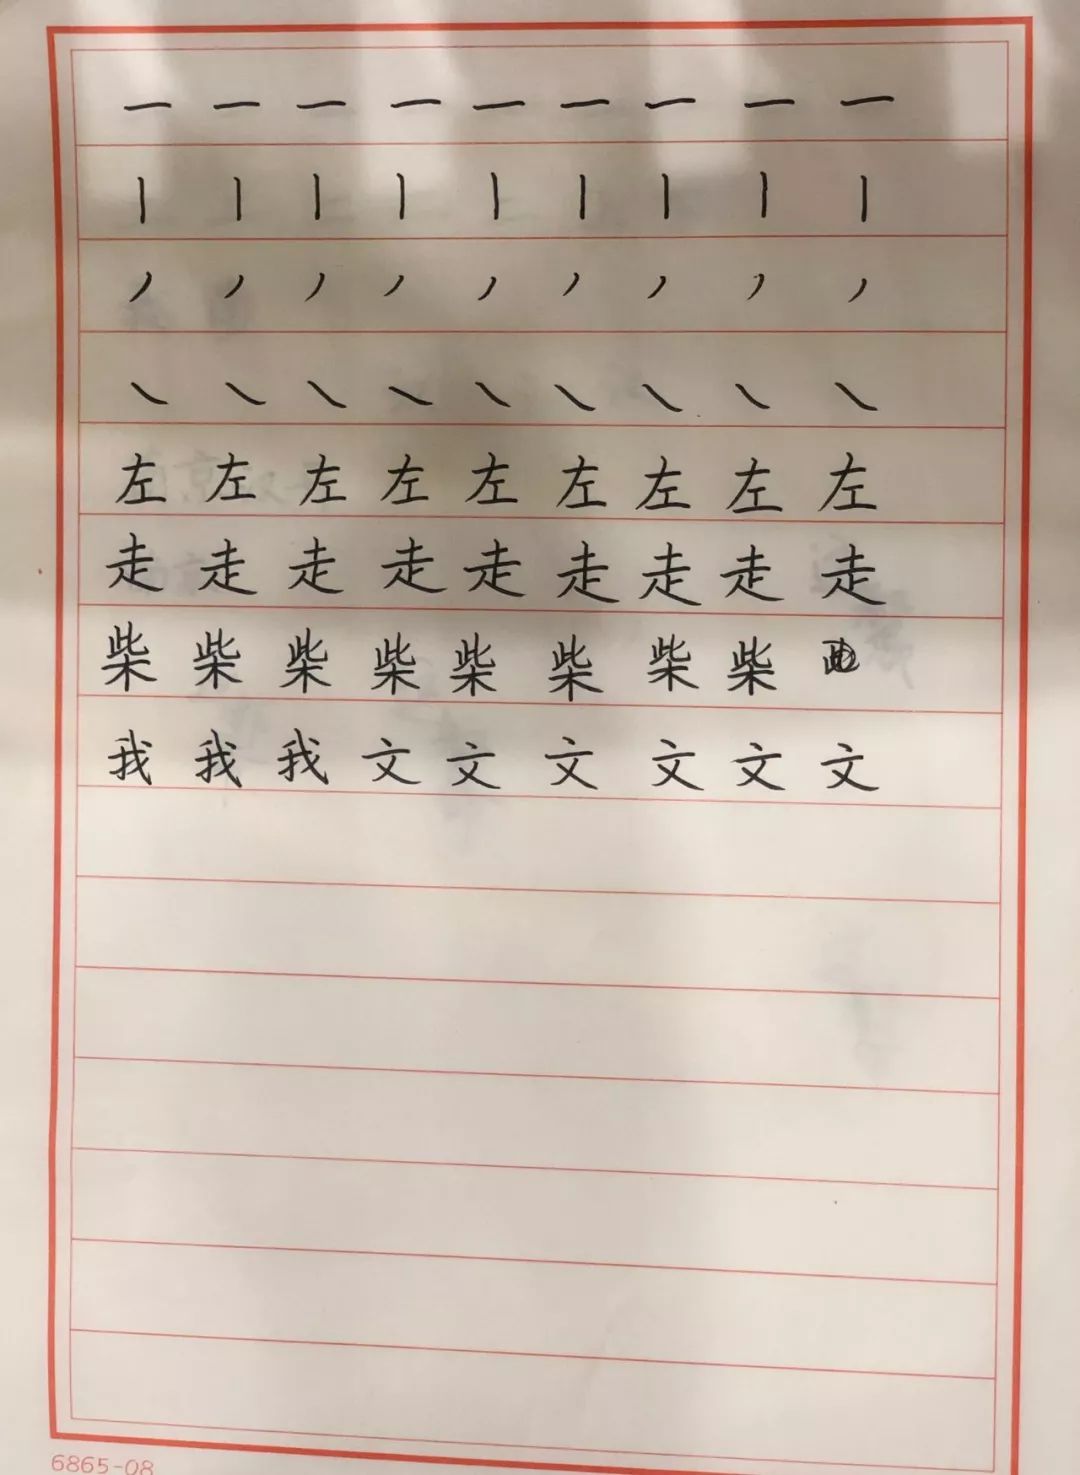 一 一 一 一 一 一 一 一 一
丨 丨 丨 丨 丨 丨 丨 丨 丨
丿 丿 丿 丿 丿 丿 丿 丿 丿
㇏ ㇏ ㇏ ㇏ ㇏ ㇏ ㇏ ㇏ ㇏
左 左 左 左 左 左 左 左 左
走 走 走 走 走 走 走 走 走
柴 柴 柴 柴 柴 柴 柴 柴
我 我 我 文 文 文 文 文 文
6865-08